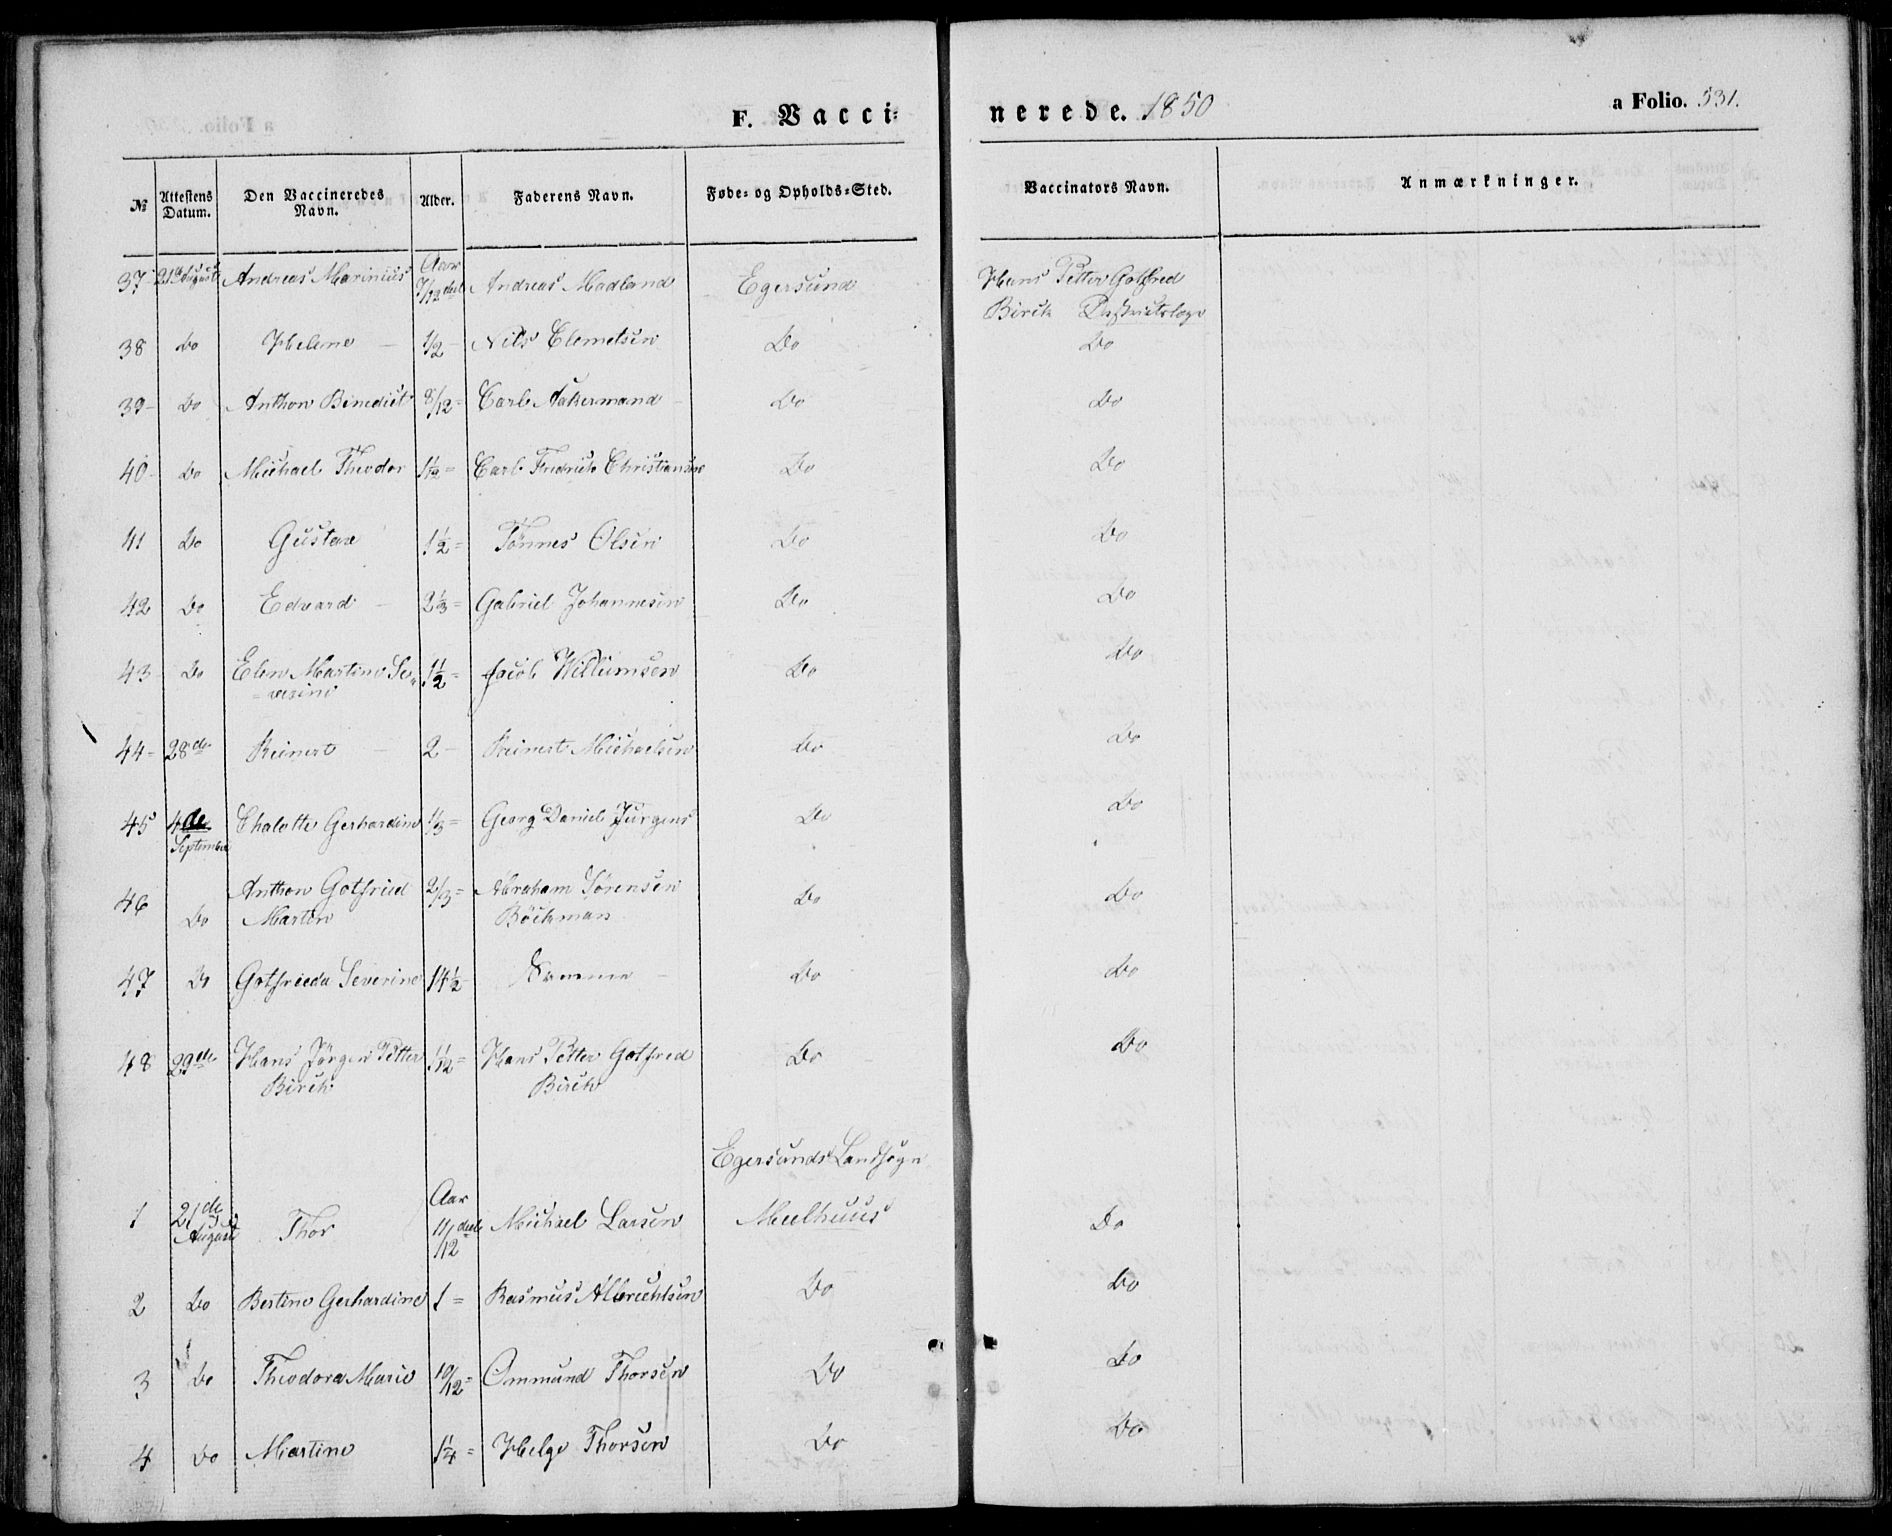 F. Vacci=
nerede. 1850
a Folio. 531.
№ Attestens Datum. Den Vaccineredes Navn. Alder. Faderens Navn. Føde= og Opholds=Sted. Vaccinators Navn. Anmærkninger.
37 21de August Andreas Marinius Aar 7/12 deel Andreas Madland Egersund Hans Petter Gotfred
Birch Districtslæge
38 Do Helene – 1/2 – Nils Clemetsen Do Do
39 – Do Anthon Binedict 8/12 = Carl Aakermand – Do Do
40 – Do Michael Theodor 1 1/2 = Carl Fredrich Christiansen Do Do
41 Do Gustav 1 1/2 = Tönnes Olsen Do Do
42 Do Edvard – 2 1/3 = Gabriel Johannesen Do Do
43 Do Elen Martine Se„ 1 1/2 = Jacob Willumsen Do Do
= verine
44 = 28de Reinert – 2 – Reinert Michaelsen Do Do
45 4de September Chalotte Gerhardine 1/3 = Georg Daniel Jürgens Do Do
46 Do Anthon Gotfried 2/3 = Abraham Sørensen Do Do
Martin Böckman
47 Do Gotfrieda Severine 14 1/2 Samme – Do Do
48 29de Hans Jörgen Petter 1 1/12 = Hans Petter Gotfred Do Do
Birch Birch
Egersunds Landsogn
1 21de August Thor Aar 11/12 deel Michael Larsen Meelhuus Do
2 Do Bertine Gerhardine 1 = Rasmus Albrechtsen Do Do
3 Do Theodora Marie 10/12 = Ommund Thorsen Do Do
4 Do Martine 1 1/4 = Helge Thorsen Do Do